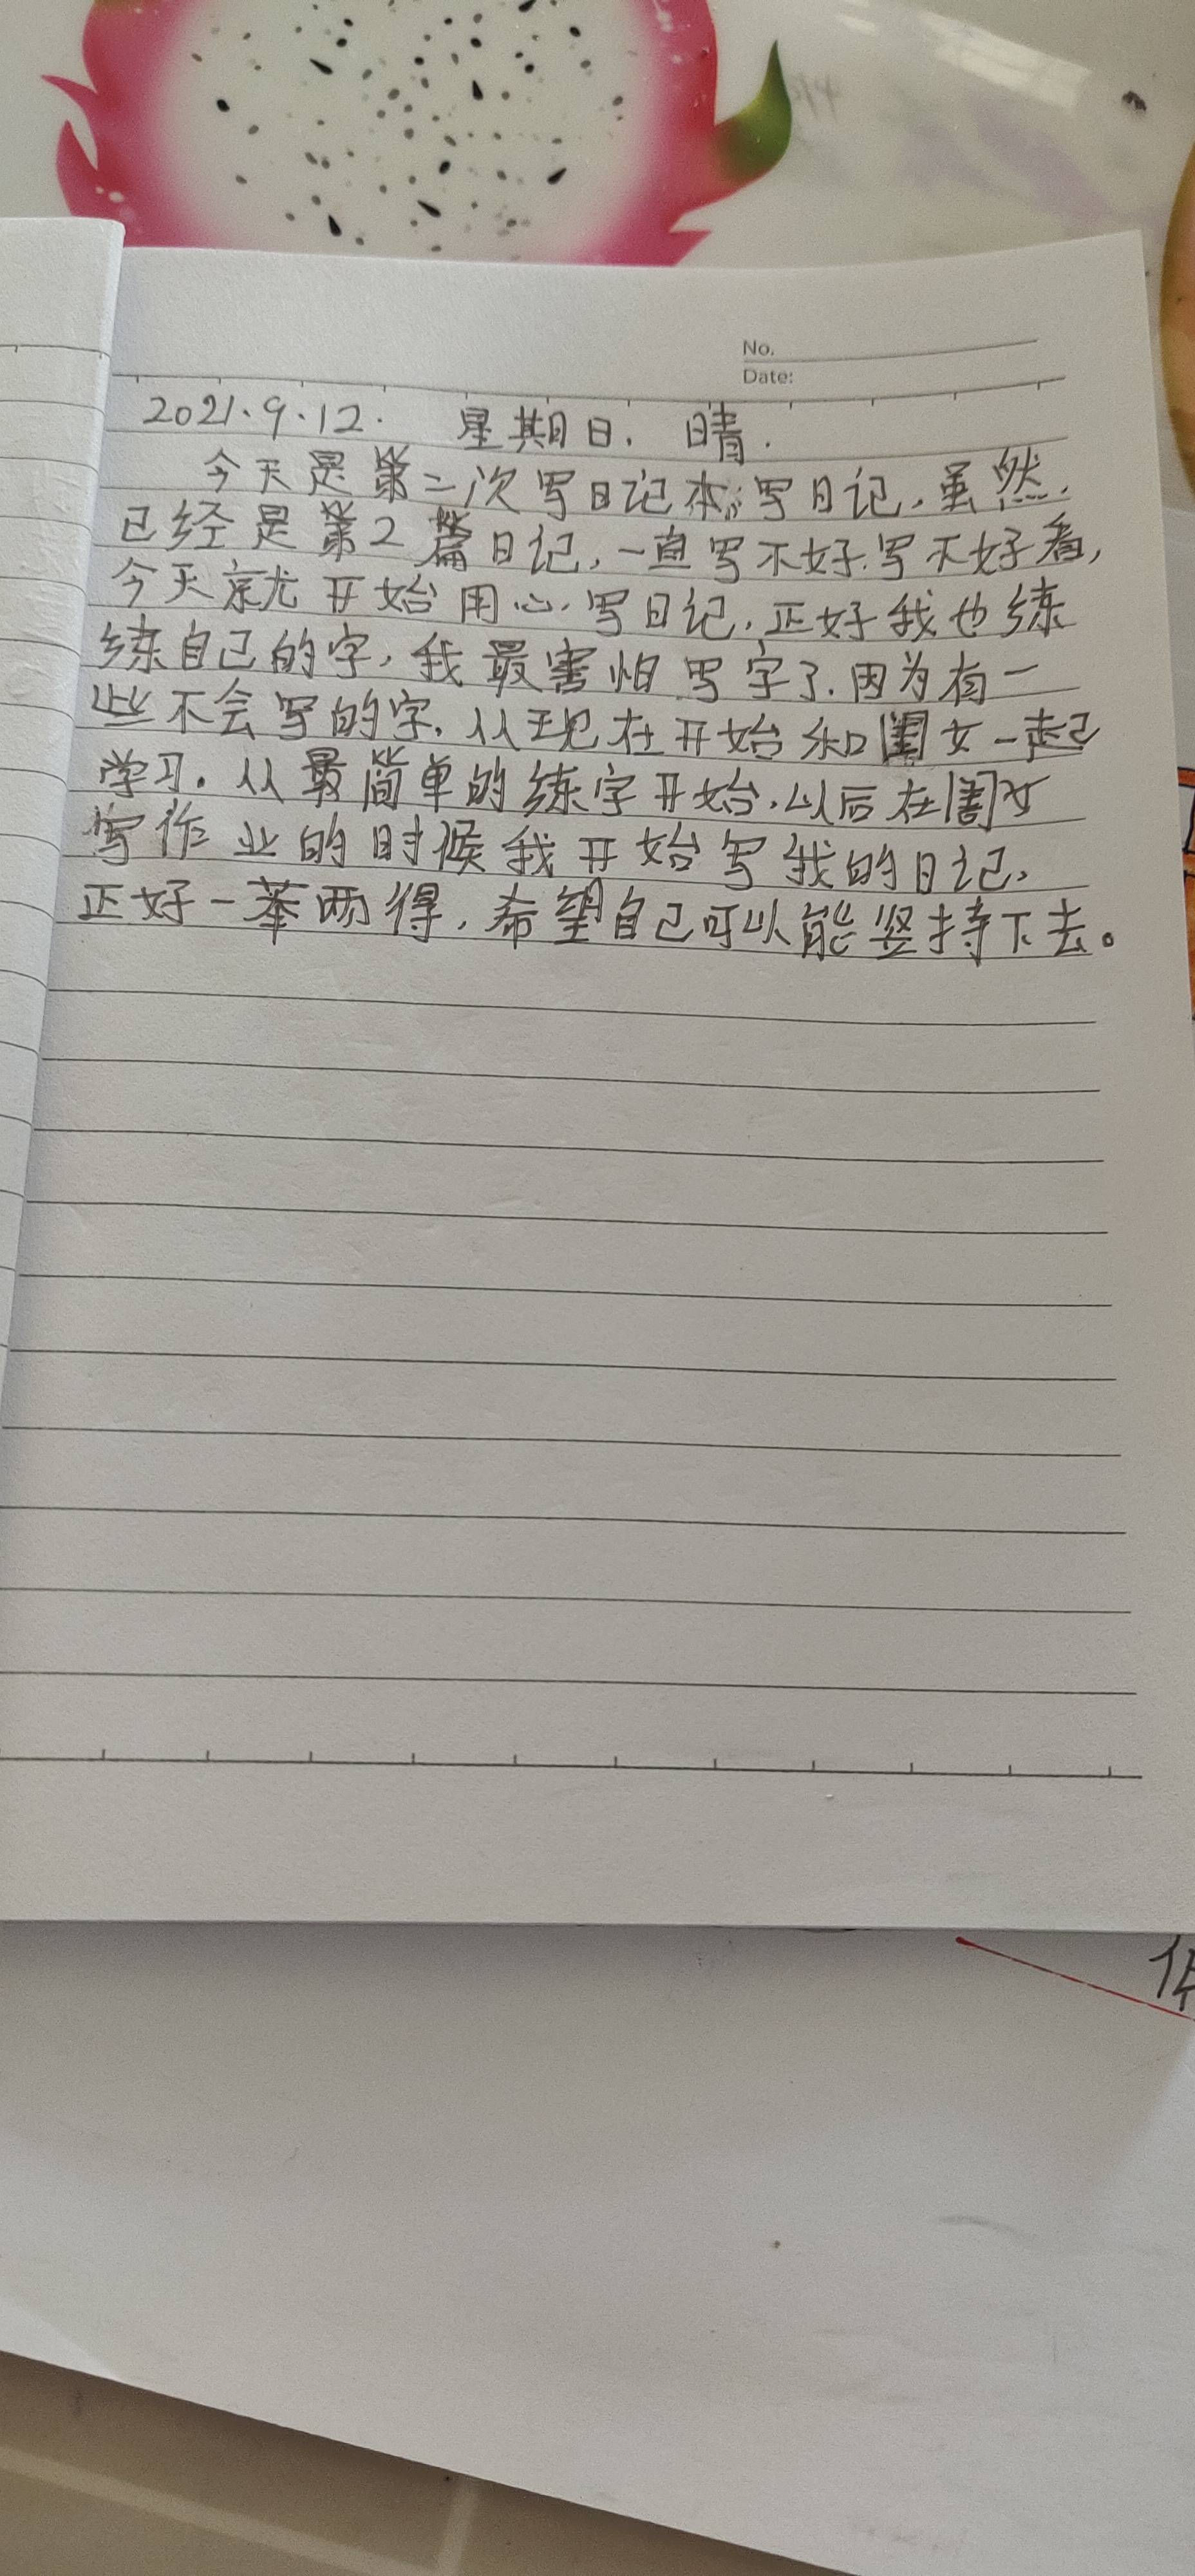 No.
Date:
2021.9.12. 星期日. 晴.
今天是第二次写日记本写日记,虽然
已经是第2篇日记,一直写不好.写不好看,
今天就开始用心写日记,正好我也练
练自己的字,我最害怕写字了.因为有一
些不会写的字.从现在开始和闺女一起
学习.从最简单的练字开始,以后在闺女
写作业的时候我开始写我的日记.
正好一举两得,希望自己可以能坚持下去。